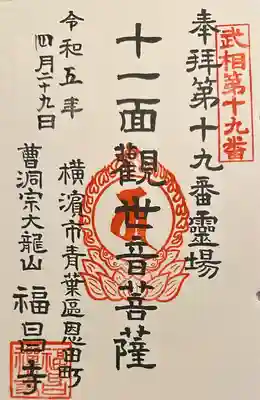 武相第十九番
奉拝第十九番靈場
十一面觀世音菩薩
横濱市青葉區恩田町
令和五年
四月二十九日
曹洞宗大龍山
福昌寺